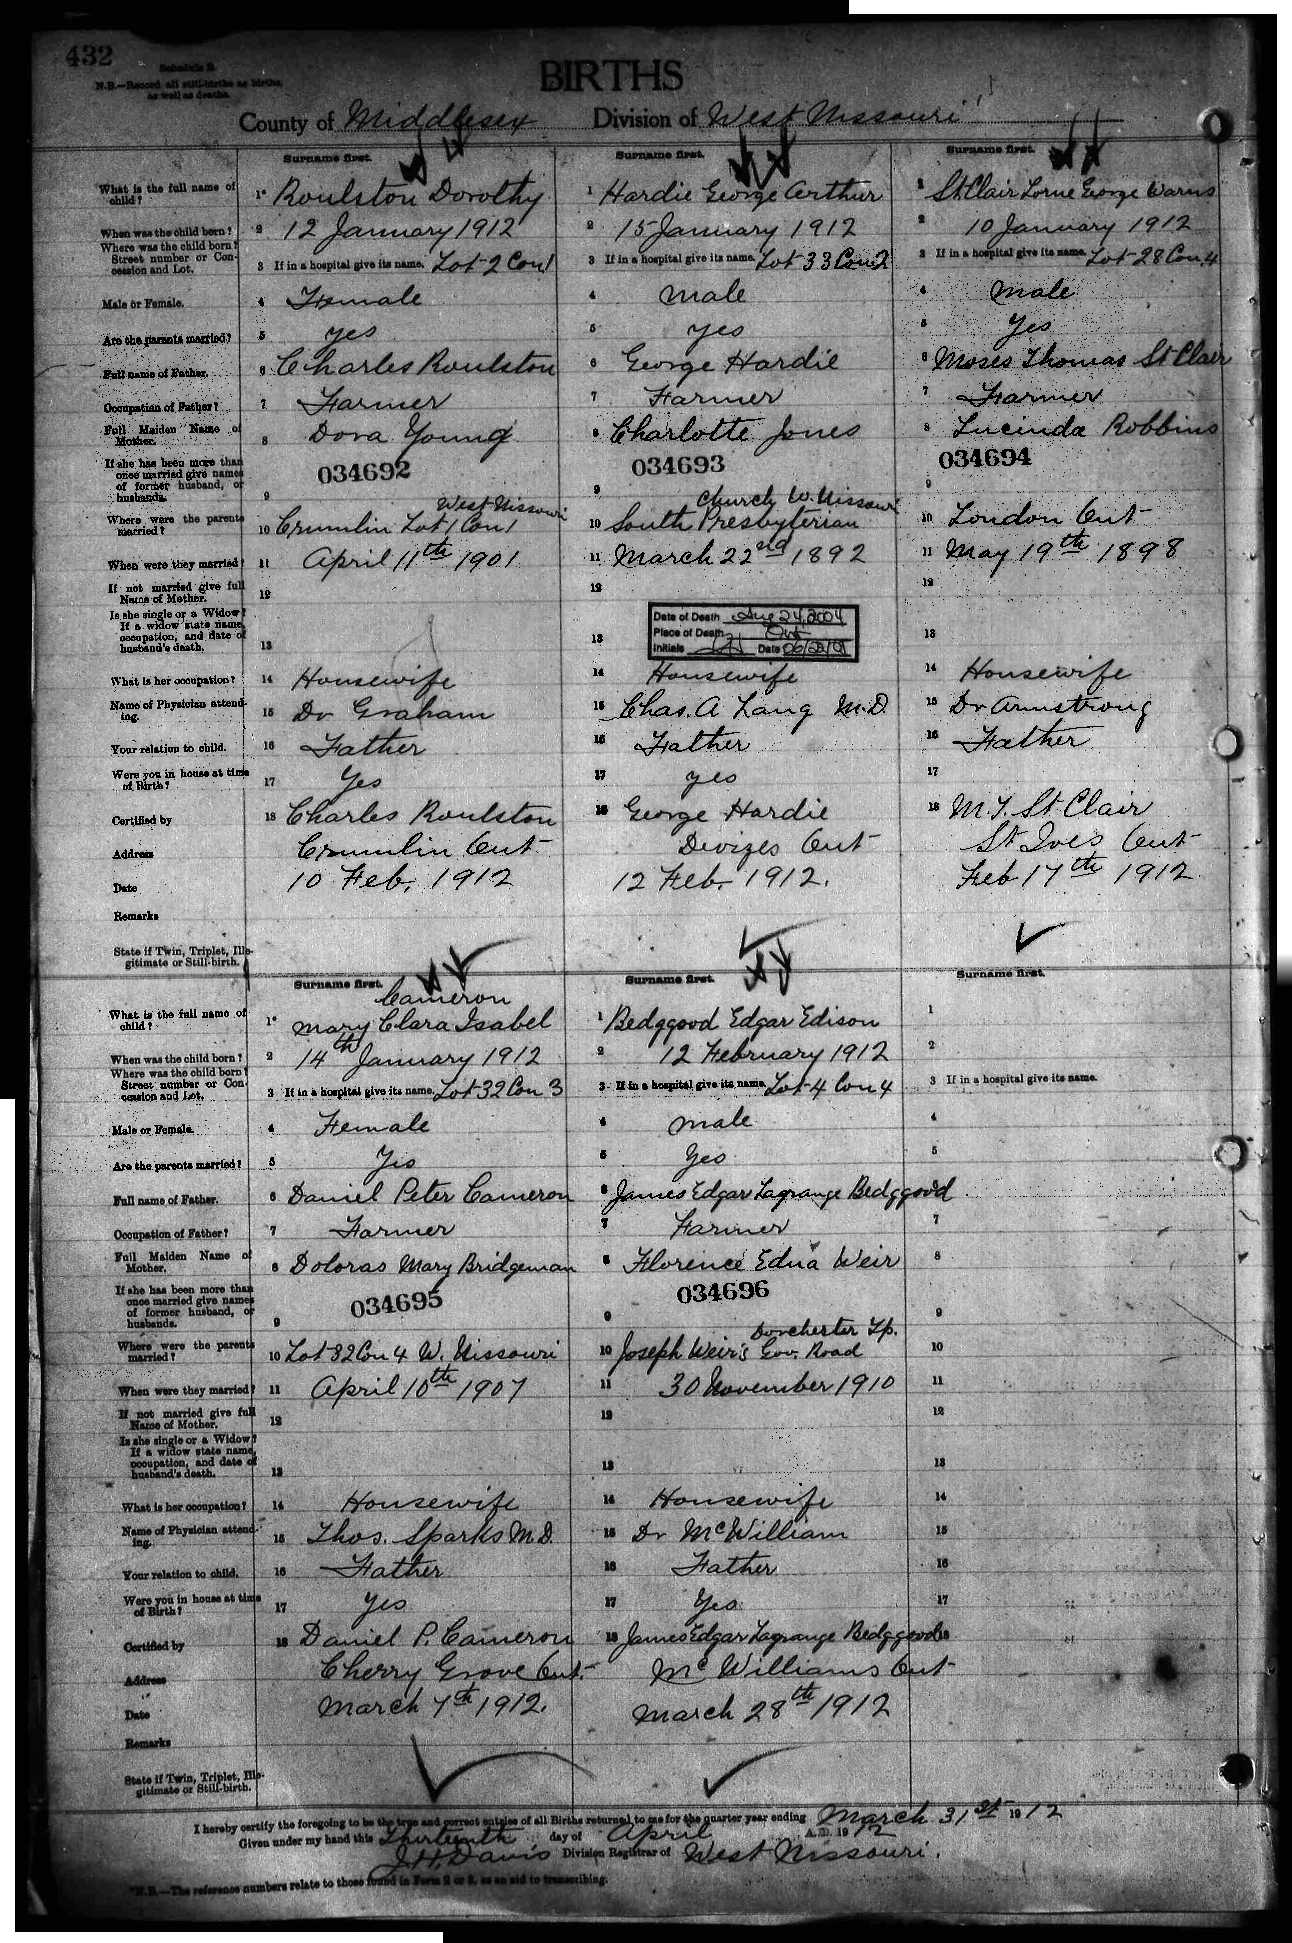 432
Schedule B.
N.B.—Record all still-births as births,
as well as deaths.
BIRTHS
County of Middlesex Division of West Nissouri
Surname first. Surname first. Surname first.
What is the full name of child? 1* Roulston Dorothy 1 Hardie George Arthur 1 St. Clair Lorne George Warns
When was the child born? 2 12 January 1912 2 15 January 1912 2 10 January 1912
Where was the child born? Street number or Concession and Lot. 3 If in a hospital give its name. Lot 2 Con 1 3 If in a hospital give its name. Lot 33 Con 2 3 If in a hospital give its name. Lot 28 Con. 4
Male or Female. 4 Female 4 male 4 male
Are the parents married? 5 yes 5 yes 5 Yes
Full name of Father. 6 Charles Roulston 6 George Hardie 6 Moses Thomas St Clair
Occupation of Father? 7 Farmer 7 Farmer 7 Farmer
Full Maiden Name of Mother. 8 Dora Young 8 Charlotte Jones 8 Lucinda Robbins
034692 034693 034694
If she has been more than once married give names of former husband, or husbands. 9 9 9
West Nissouri Church W. Nissouri
Where were the parents married? 10 Crumlin Lot 1 Con 1 10 South Presbyterian 10 London Ont
When were they married? 11 April 11th 1901 11 March 22nd 1892 11 May 19th 1898
If not married give full Name of Mother. 12 12 12
Date of Death Aug 24, 2004
Place of Death Ont
Initials Date 06/20/01
Is she single or a Widow? If a widow state name, occupation, and date of husband's death. 13 13 13
What is her occupation? 14 Housewife 14 Housewife 14 Housewife
Name of Physician attending. 15 Dr Graham 15 Chas. A Lang M.D. 15 Dr Armstrong
Your relation to child. 16 Father 16 Father 16 Father
Were you in house at time of Birth? 17 Yes 17 yes 17
Certified by 18 Charles Roulston 18 George Hardie 18 M. T. St. Clair
Address Crumlin Ont Devizes Ont St Ives Ont
Date 10 Feb. 1912 12 Feb. 1912. Feb 17th 1912
Remarks
State if Twin, Triplet, Illegitimate or Still-birth.
Surname first. Surname first. Surname first.
Cameron
What is the full name of child? 1* Mary Clara Isabel 1 Bedggood Edgar Edison 1
When was the child born? 2 14th January 1912 2 12 February 1912 2
Where was the child born? Street number or Concession and Lot. 3 If in a hospital give its name. Lot 32 Con 3 3 If in a hospital give its name. Lot 4 Con 4 3 If in a hospital give its name.
Male or Female. 4 Female 4 male 4
Are the parents married? 5 Yes 5 Yes 5
Full name of Father. 6 Daniel Peter Cameron 6 James Edgar Lagrange Bedggood
Occupation of Father? 7 Farmer 7 Farmer 7
Full Maiden Name of Mother. 8 Doloras Mary Bridgeman 8 Florence Edna Weir 8
034695 034696
If she has been more than once married give names of former husband, or husbands. 9 9 9
Dorchester Tp.
Where were the parents married? 10 Lot 32 Con 4 W. Nissouri 10 Joseph Weir's Gov. Road 10
When were they married? 11 April 10th 1907 11 30 November 1910 11
If not married give full Name of Mother. 12 12 12
Is she single or a Widow? If a widow state name, occupation, and date of husband's death. 13 13 13
What is her occupation? 14 Housewife 14 Housewife 14
Name of Physician attending. 15 Thos. Sparks M.D. 15 Dr McWilliam 15
Your relation to child. 16 Father 16 Father 16
Were you in house at time of Birth? 17 Yes 17 Yes 17
Certified by 18 Daniel P. Cameron 18 James Edgar Lagrange Bedggood 18
Address Cherry Grove Ont. McWilliams Ont
Date March 7th 1912. March 28th 1912
Remarks
State if Twin, Triplet, Illegitimate or Still-birth.
I hereby certify the foregoing to be the true and correct entries of all Births returned to me for the quarter year ending March 31st 1912
Given under my hand this thirteenth day of April A.D. 1912
J. H. Davis Division Registrar of West Nissouri.
*N.B.—The reference numbers relate to those found in Form 2 or 3, as an aid to transcribing.